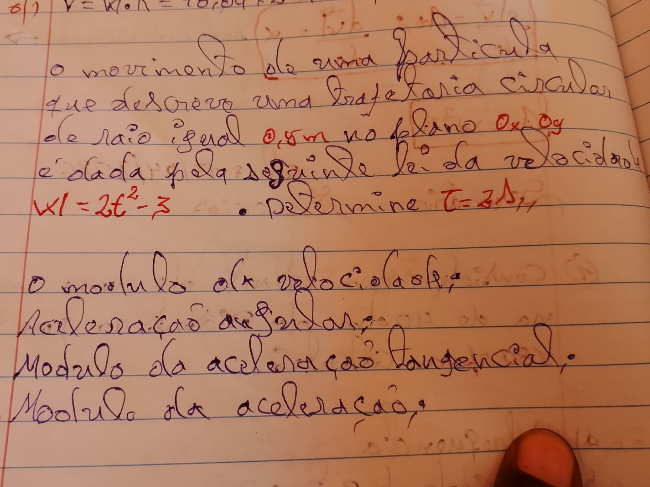 V = W.R =
O movimento de uma particula
que descreve uma trajetoria circular
de raio igual 0,5m no plano Ox Oy
é dada pela seguinte lei da velocidade
W = 2t² - 3 . Determine t = 2s,,
O modulo da velocidade;
Aceleração angular;
Modulo da aceleração tangencial;
Modulo da aceleração;